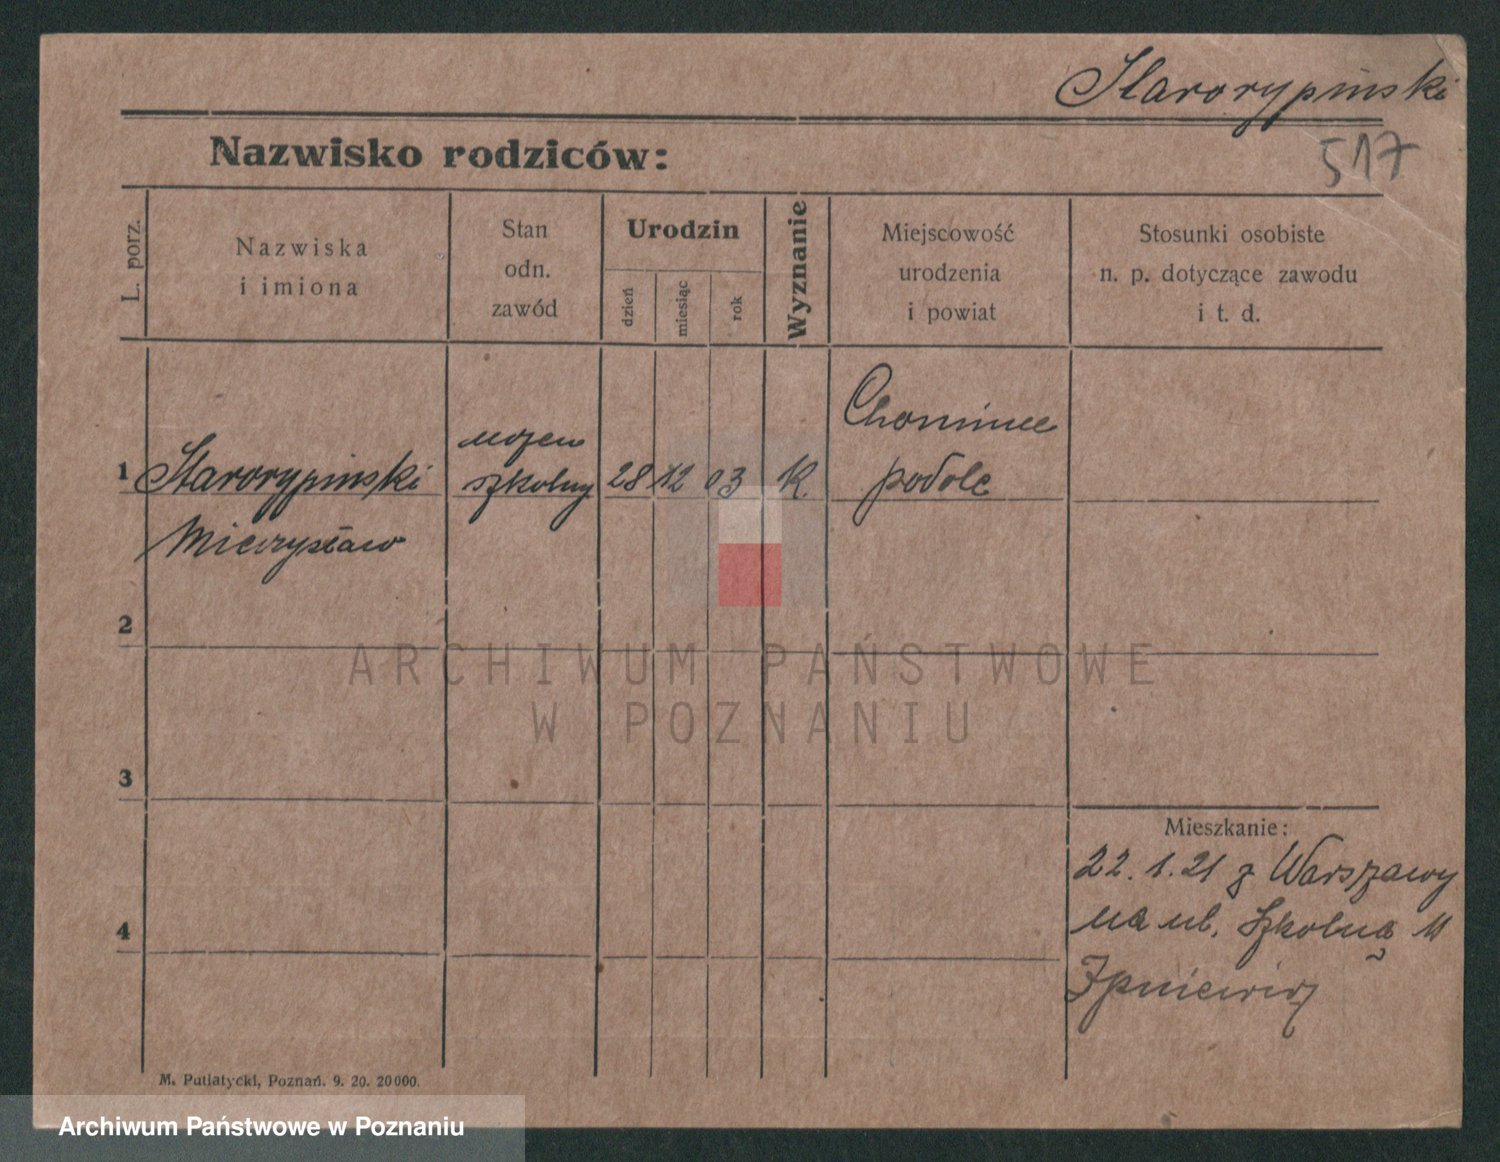 Starorypiński
517
Nazwisko rodziców:
L. porz.
Nazwiska
i imiona
Stan
odn.
zawód
Urodzin
dzień
miesiąc
rok
Wyznanie
Miejscowość
urodzenia
i powiat
Stosunki osobiste
n. p. dotyczące zawodu
i t. d.
1
Starorypiński
Mieczysław
uczeń
szkolny
28 12 03
K.
podole
2
3
4
Mieszkanie:
22.1.21 z Warszawy
na ul. Szkolną 11
M. Putiatycki, Poznań. 9. 20. 20000.
ARCHIWUM PAŃSTWOWE
W POZNANIU
Archiwum Państwowe w Poznaniu